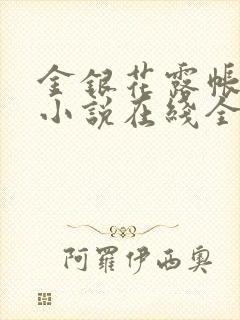 金银花露帐
小说在线全
阿罗伊西奥